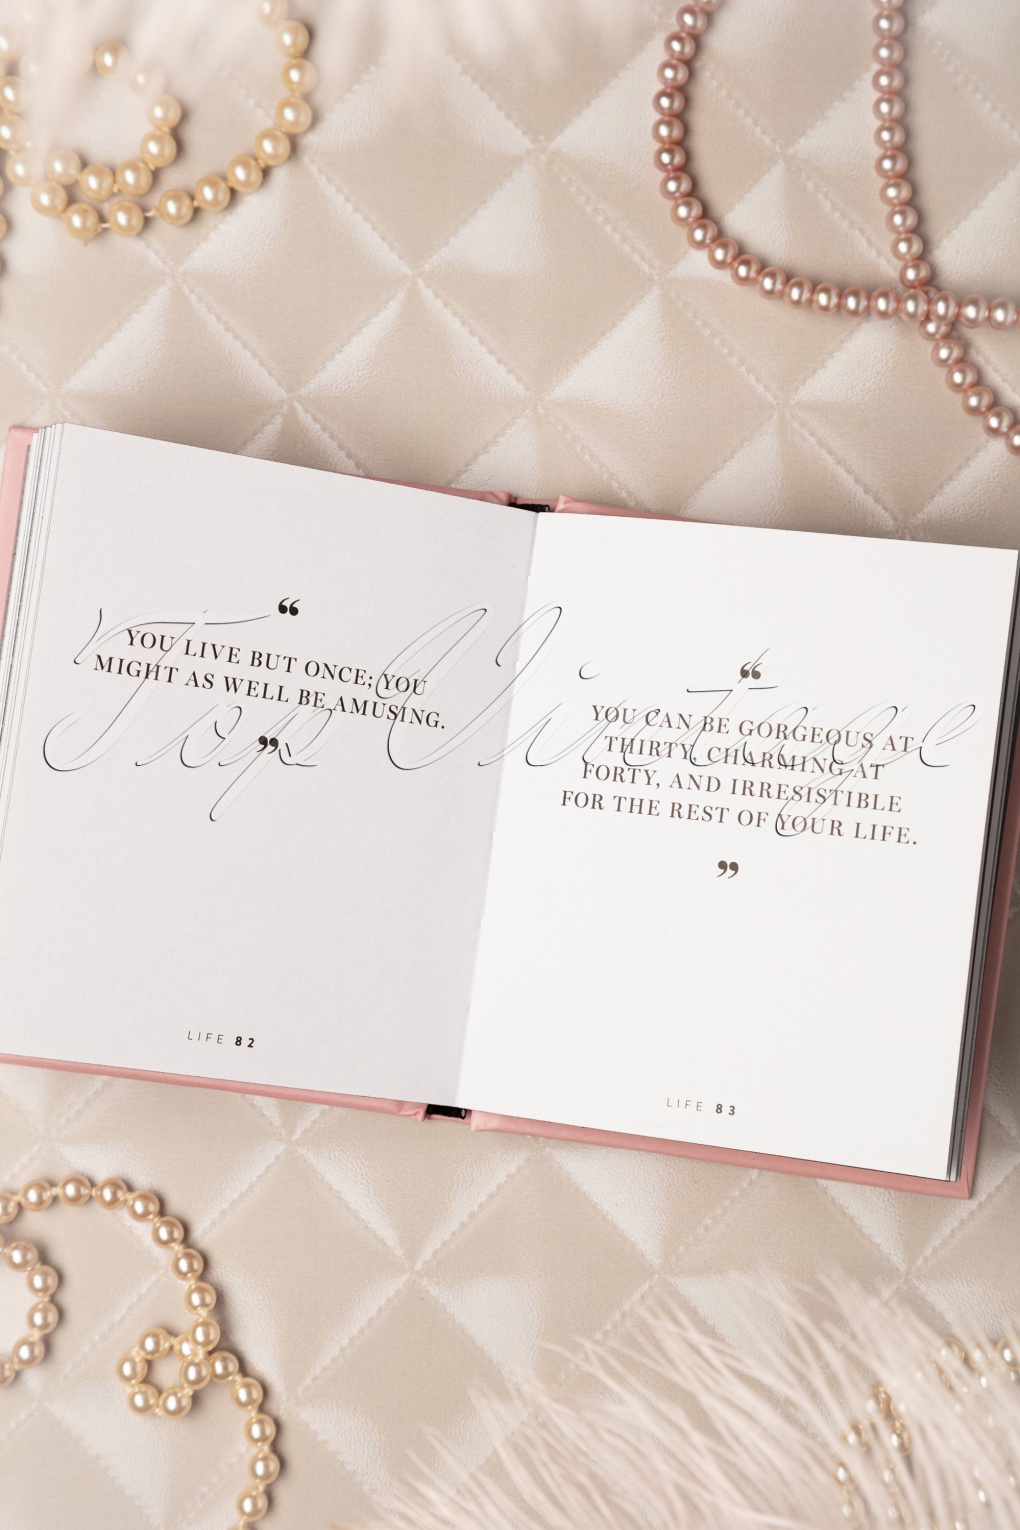 “
YOU LIVE BUT ONCE; YOU
MIGHT AS WELL BE AMUSING.
”
LIFE 82
“
YOU CAN BE GORGEOUS AT
THIRTY, CHARMING AT
FORTY, AND IRRESISTIBLE
FOR THE REST OF YOUR LIFE.
”
LIFE 83
Top Vintage